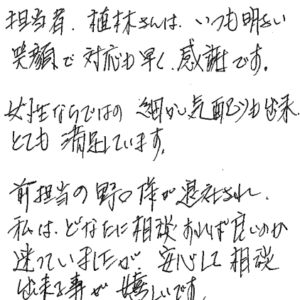 担当者、植林さんは、いつも明るい
笑顔で対応も早く、感謝です。
女性ならではの細かい気配りも出来、
とても満足しています。
前担当の野口様が退社され、
私は、どなたに相談すれば良いのか
迷っていましたが、安心して相談
出来る事が嬉しいです。